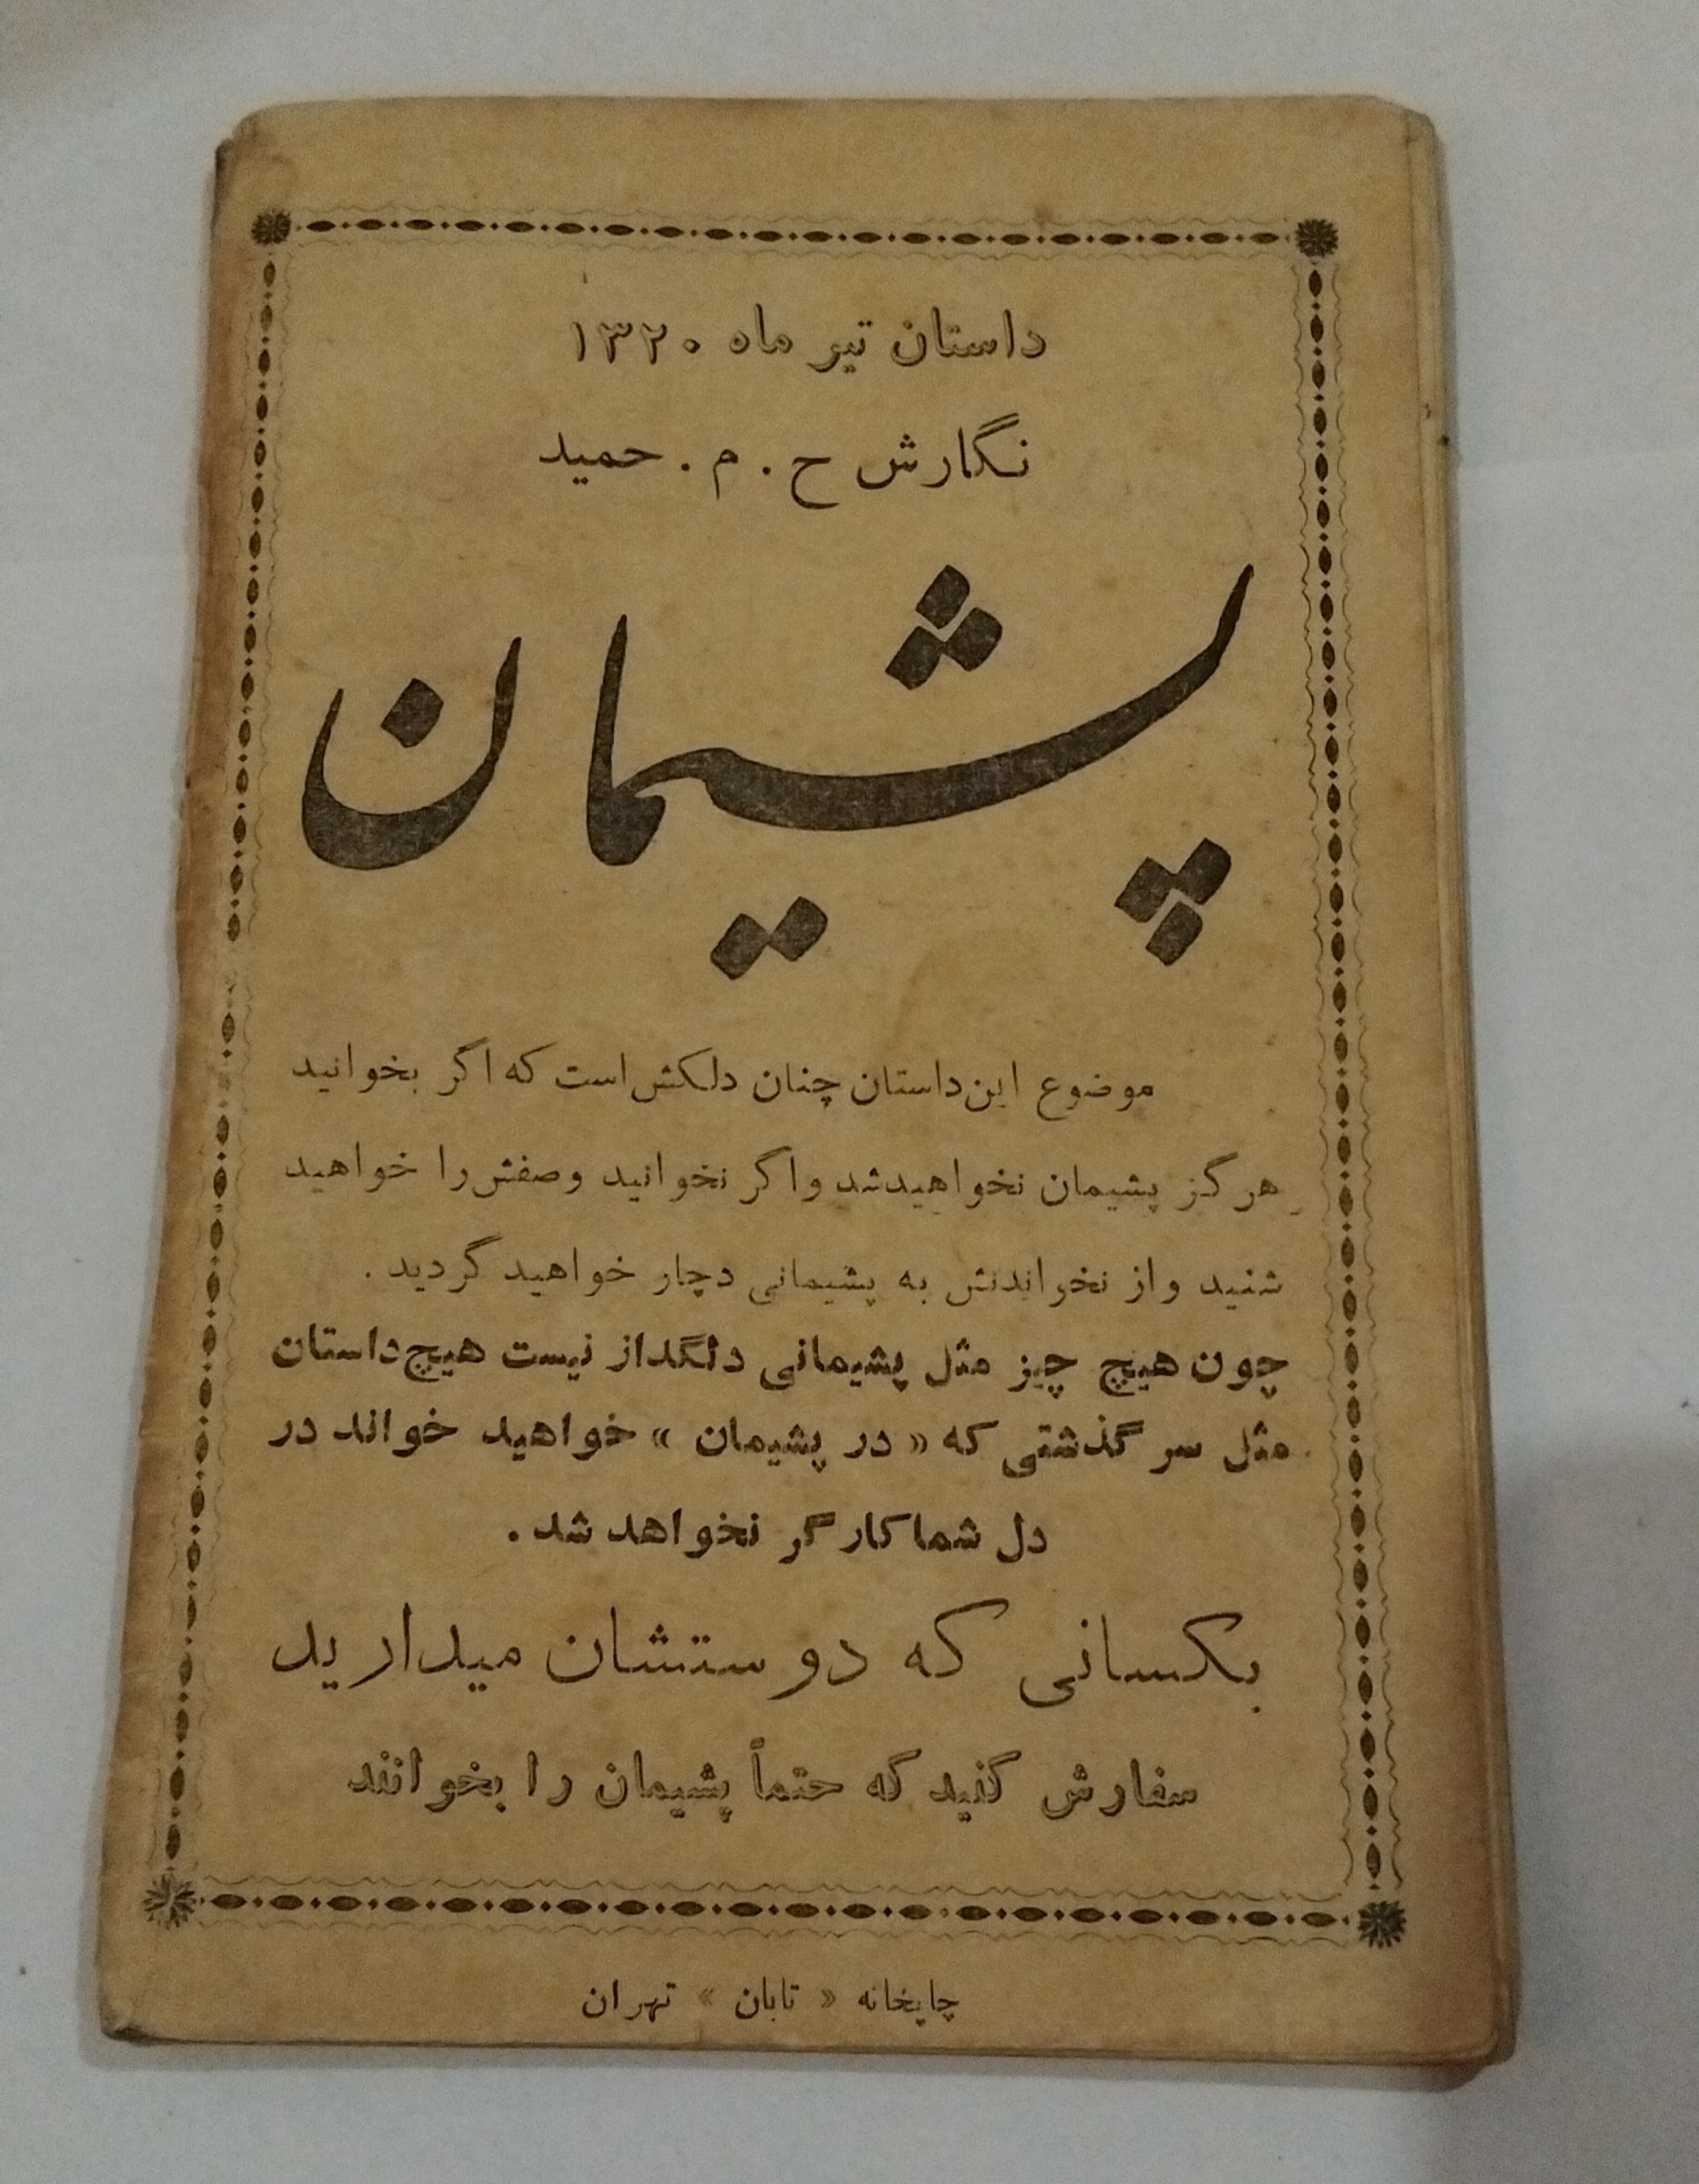 داستان تیر ماه ۱۳۲۰
نگارش ح . م . حمید
پشیمان
موضوع این داستان چنان دلکش است که اگر بخوانید
هرگز پشیمان نخواهید شد و اگر نخوانید وصفش را خواهید
شنید و از نخواندنش به پشیمانی دچار خواهید گردید .
چون هیچ چیز مثل پشیمانی دلگداز نیست هیچ داستان
مثل سر گذشتی که « در پشیمان » خواهید خواند در
دل شما کارگر نخواهد شد .
بکسانی که دوستشان میدارید
سفارش کنید که حتماً پشیمان را بخوانند
چاپخانه « تابان » تهران